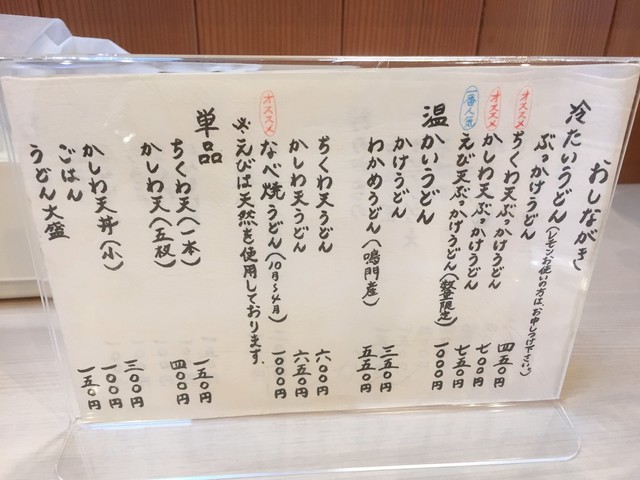 おしながき
冷たいうどん(レモンお使いの方は、お申しつけ下さい。)
ぶっかけうどん 四五〇円
オススメ ちくわ天ぶっかけうどん 七〇〇円
オススメ かしわ天ぶっかけうどん 七五〇円
一番人気 えび天ぶっかけうどん(数量限定) 一〇〇〇円
温かいうどん
かけうどん 三五〇円
わかめうどん(鳴門産) 五五〇円
ちくわ天うどん 六〇〇円
かしわ天うどん 六五〇円
オススメ なべ焼うどん(10月〜4月) 一〇〇〇円
※えびは天然を使用しております.
単品
ちくわ天(一本) 一五〇円
かしわ天(五枚) 四〇〇円
かしわ天丼(小) 三〇〇円
ごはん 一〇〇円
うどん大盛 一五〇円